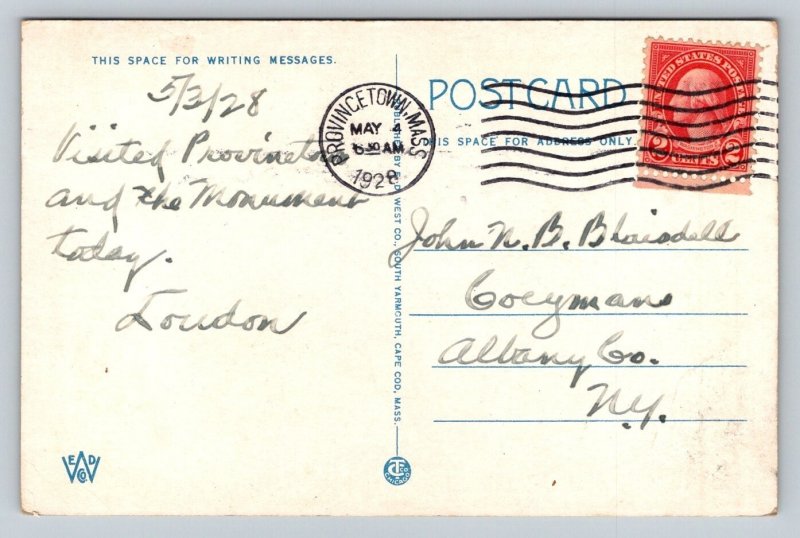 THIS SPACE FOR WRITING MESSAGES.
5/3/28
Visited Provincetown
and the Monument
today.
Loudon
PROVINCETOWN, MASS
MAY 4
6 30 AM
1928
PUBLISHED BY E. D. WEST CO., SOUTH YARMOUTH, CAPE COD, MASS.
POSTCARD
THIS SPACE FOR ADDRESS ONLY.
UNITED STATES POSTAGE
2 CENTS 2
John N. B. Blaisdell
Coeymans
Albany Co.
N.Y.
E D
W
CO.
CHICAGO